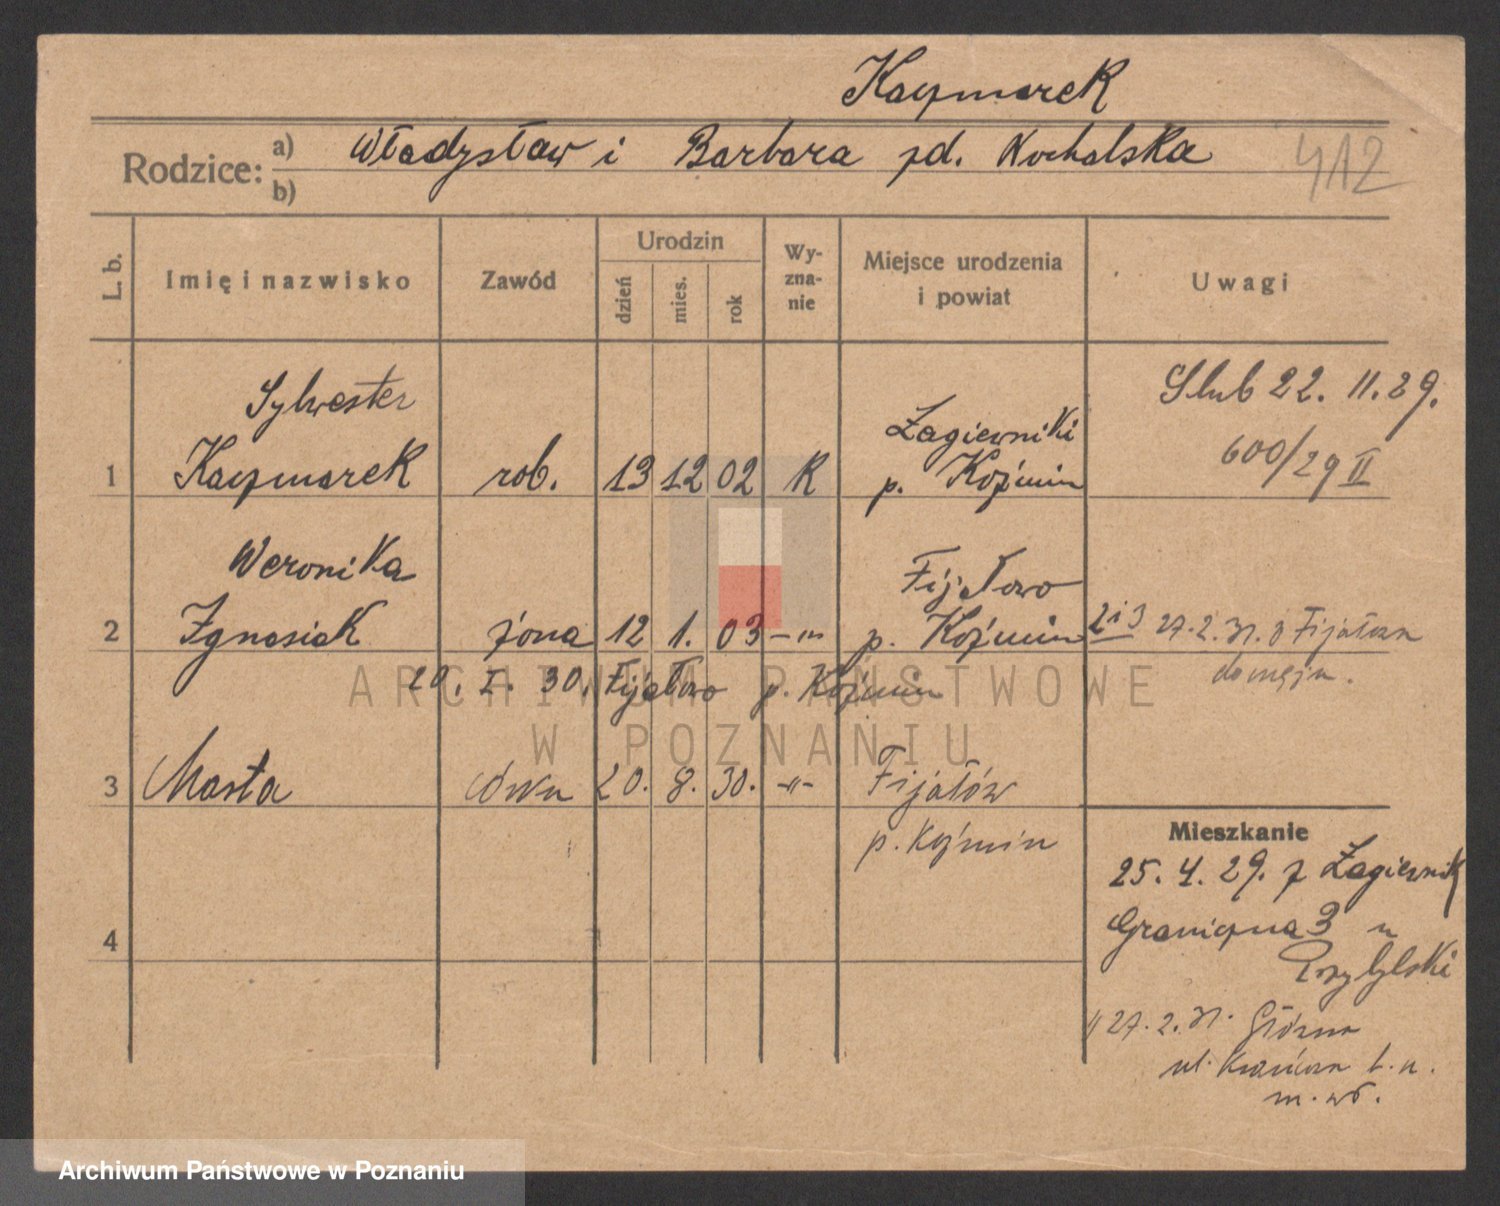 Kaczmarek
Rodzice: a) Władysław i Barbara zd. Kochalska
b)
412
L. b. Imię i nazwisko Zawód Urodzin dzień mies. rok Wyznanie Miejsce urodzenia i powiat Uwagi
Sylwester
Ślub 22. 11. 29.
Łagiewniki
1 Kaczmarek rob. 13 12 02 R p. Koźmin
600/29 II
Weronika Fijałowo
2 Ignasiak żona 12 1. 03 -"- p. Koźmin
2 i 3 27.2.31. z Fijałowa
20. I. 30. Fijałowo p. Koźmin
3 Marta córka 20. 8. 30. -"- Fijałów
p. Koźmin
4
Mieszkanie
25. 4. 29. z Łagiewnik
Graniczna 3 u
Przybylski
27. 2. 31. Główna
ul. b. n.
m. wł.
ARCHIWUM PAŃSTWOWE
W POZNANIU
Archiwum Państwowe w Poznaniu